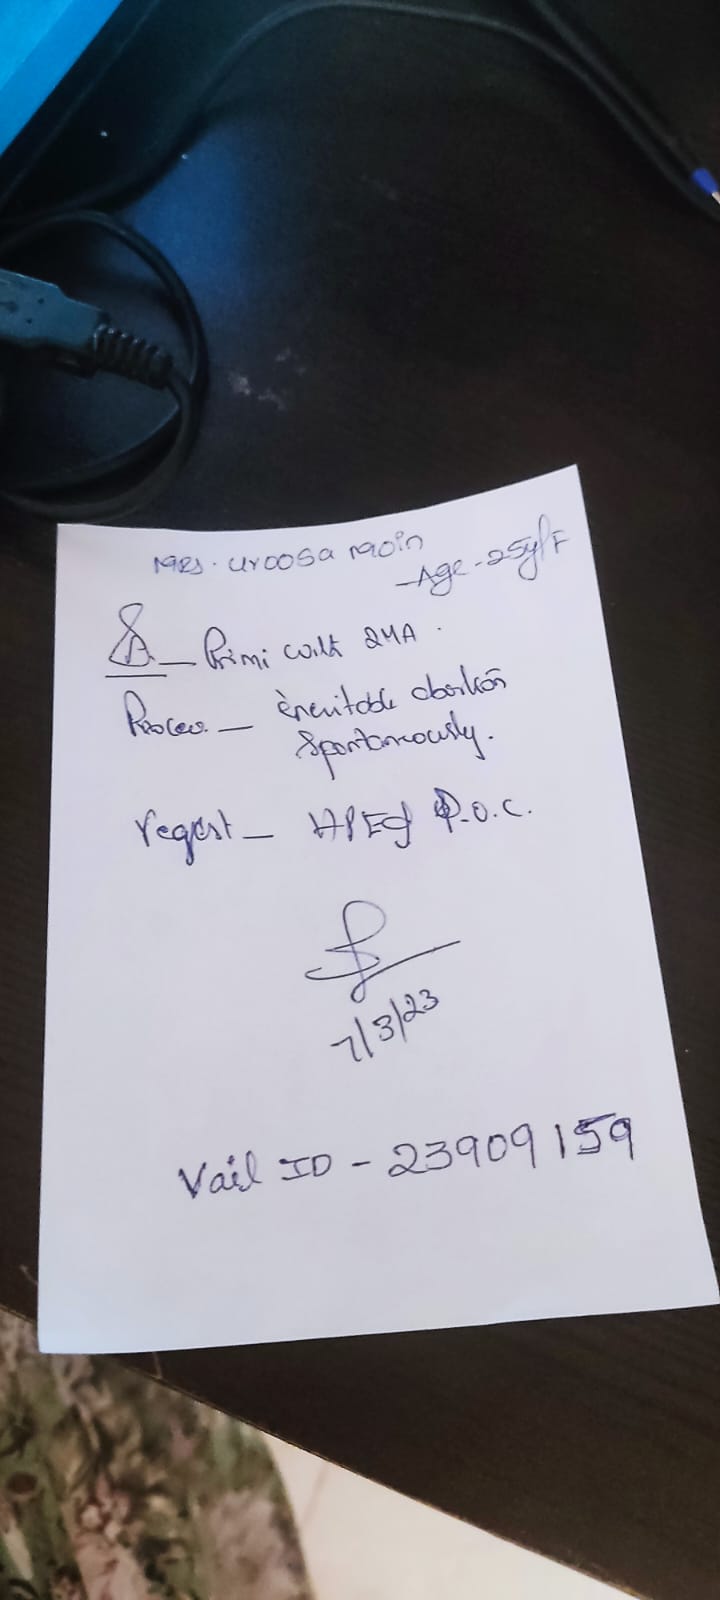 Mrs. Uroosa Moin
Age - 25y/F
Primi with 2MA.
Process - inevitable abortion
spontaneously.
reqest - HPE of P.O.C.
7/3/23
Vail ID - 23909159